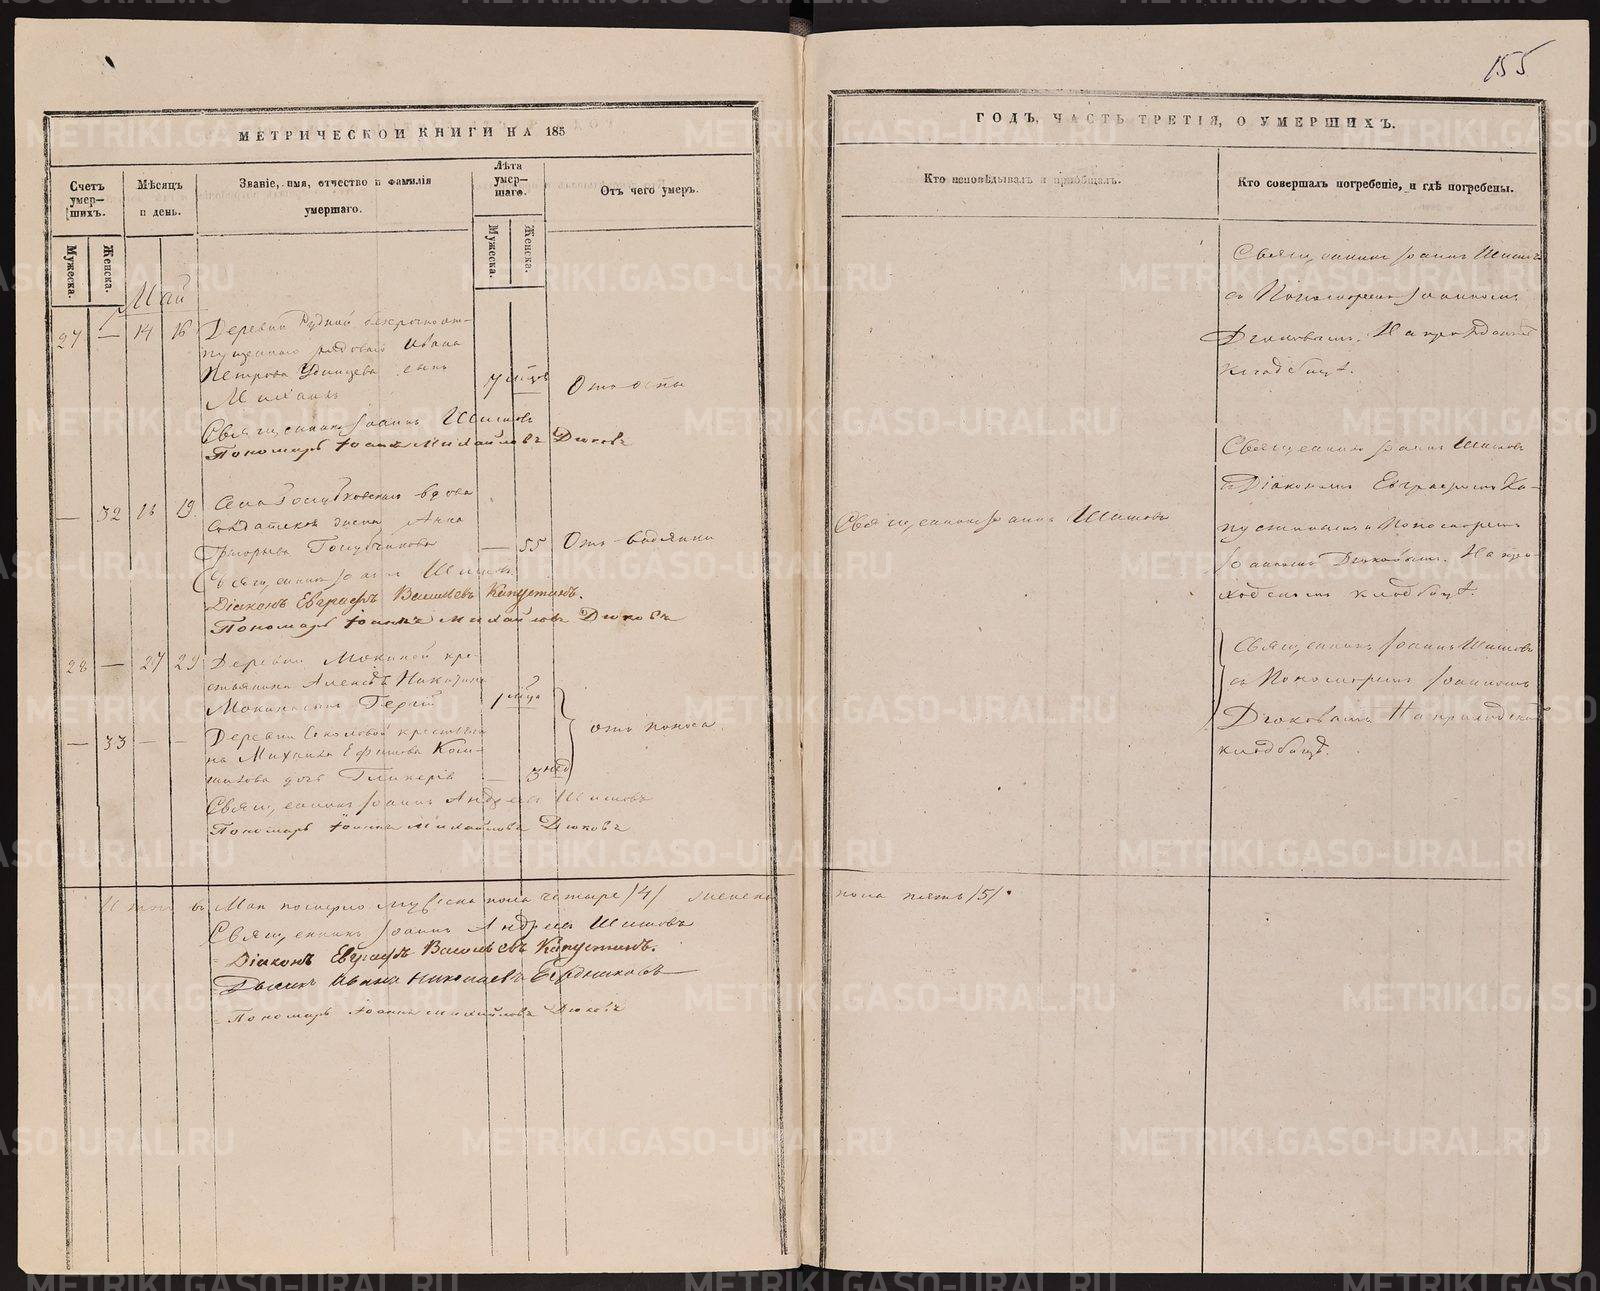 155
МЕТРИЧЕСКОЙ КНИГИ НА 185
Счетъ умер-шихъ.
Мужеска.
Женска.
Мѣсяцъ и день.
Званіе, имя, отчество и фамилія умершаго.
Лѣта умер-шаго.
Мужеска.
Женска.
Отъ чего умеръ.
Май
27 — 14 16 Деревни Рудной безсрочноот-
пущеннаго рядоваго Ивана
Петрова Удинцева сынъ
7 мцов Отъ оспы
Священникъ Іоаннъ Шишовъ
Пономарь Іоаннъ Михайловъ Дюковъ
— 32 16 19 Села Голубковскаго вдова
солдатская Анна
Григорьева Голубчикова — 55 Отъ водянки
Священникъ Іоаннъ Шишовъ
Діаконъ Евграфъ Васильевъ Капустинъ.
Пономарь Іоаннъ Михайловъ Дюковъ
28 — 27 29 Деревни Мокиной кре-
стьянина Алексѣя Никитина
1 мца
— 33 — — Деревни Соколовой крестьяни-
на Михаила Ефимова
дочь Гликерія — 3 нед
отъ поноса
Священникъ Іоаннъ Андреевъ Шишовъ
Пономарь Іоаннъ Михайловъ Дюковъ
Итого въ Маѣ померло мужеска пола четыре /4/ женска
Священникъ Іоаннъ Андреевъ Шишовъ
Діаконъ Евграфъ Васильевъ Капустинъ.
Дьячекъ Иванъ Николаевъ
Пономарь Іоаннъ Михайловъ Дюковъ
ГОДЪ, ЧАСТЬ ТРЕТІЯ, О УМЕРШИХЪ.
Кто исповѣдывалъ и пріобщалъ.
Кто совершалъ погребеніе, и гдѣ погребены.
Священникъ Іоаннъ Шишовъ
съ Пономаремъ Іоанномъ
Дюковымъ. На приходскомъ
кладбищѣ.
Священникъ Іоаннъ Шишовъ
Священникъ Іоаннъ Шишовъ
съ Діакономъ Евграфомъ Ка-
пустинымъ и Пономаремъ
Іоанномъ Дюковымъ. На при-
ходскомъ кладбищѣ.
Священникъ Іоаннъ Шишовъ
съ Пономаремъ Іоанномъ
Дюковымъ На приходскомъ
кладбищѣ.
пола пять /5/.
METRIKI.GASO-URAL.RU